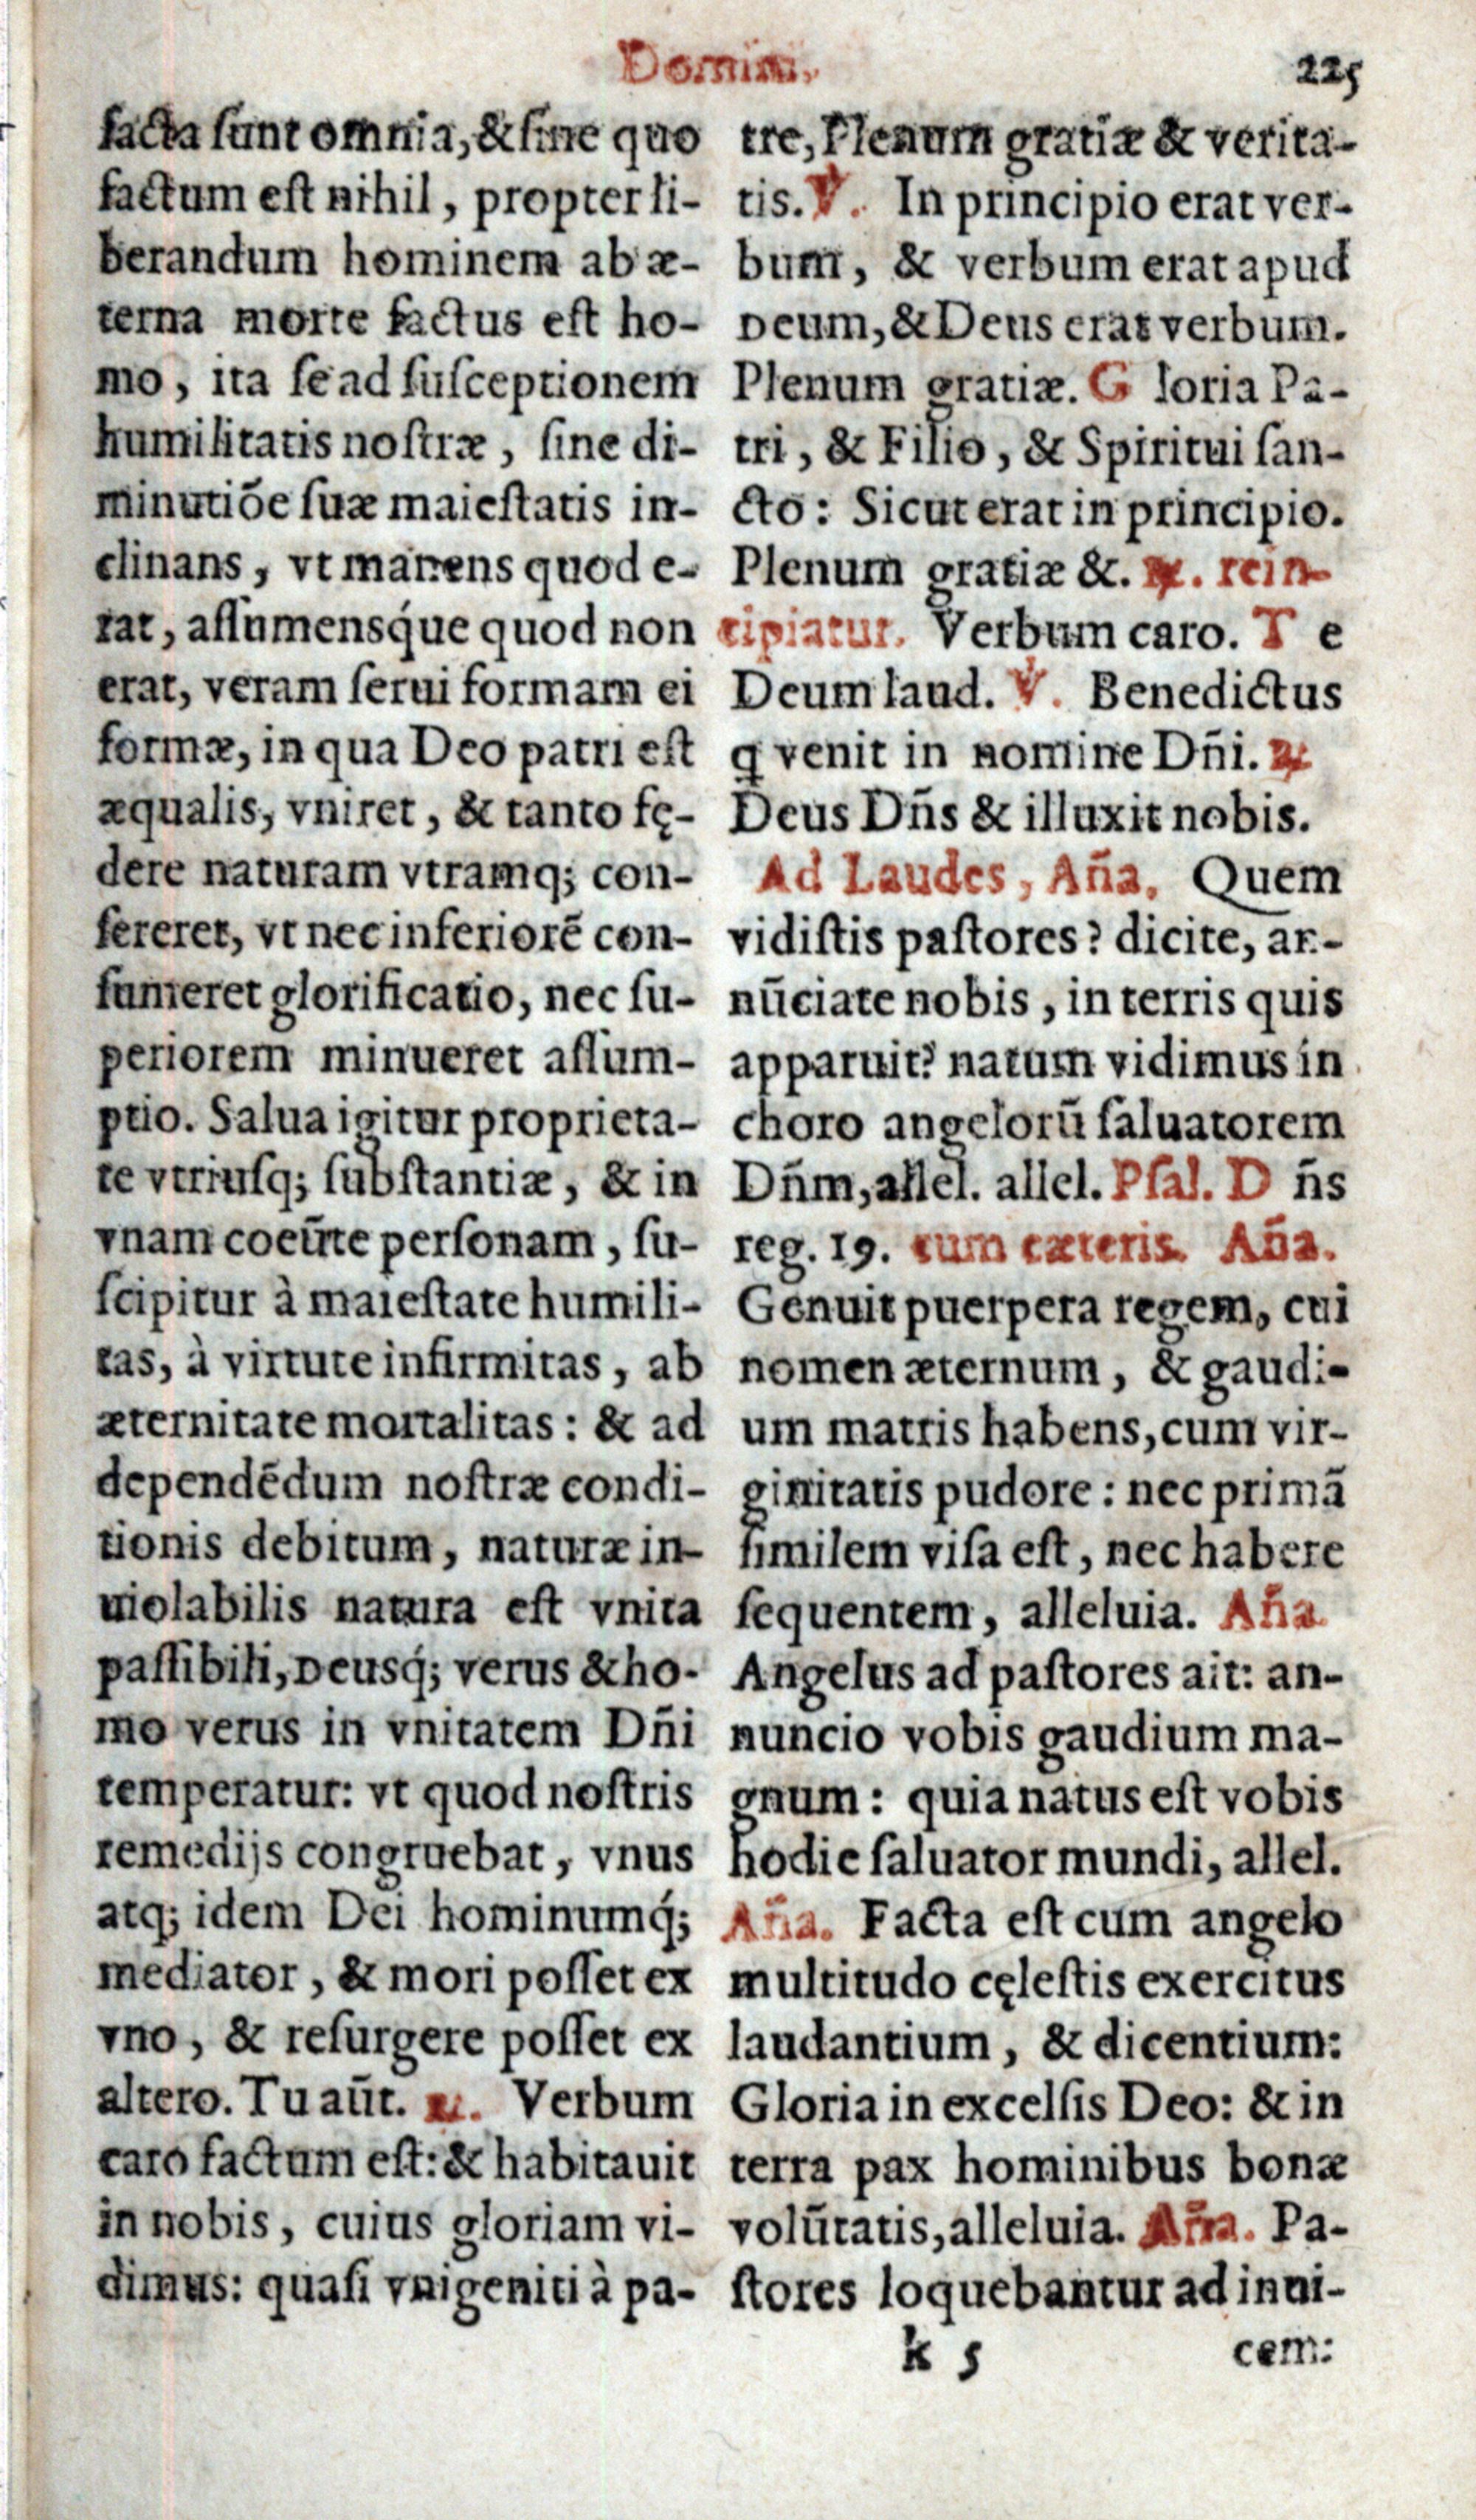 Domini.
225
facta ſunt omnia, & ſine quo
factum eſt nihil, propter li-
berandum hominem ab æ-
terna morte factus eſt ho-
mo, ita ſe ad ſuſceptionem
humilitatis noſtræ, ſine di-
minutiõe ſuæ maieſtatis in-
clinans, vt manens quod e-
rat, aſſumensq́ue quod non
erat, veram ſerui formam ei
formæ, in qua Deo patri eſt
æqualis, vniret, & tanto fę-
dere naturam vtramq; con-
fereret, vt nec inferiorẽ con-
ſumeret glorificatio, nec ſu-
periorem minueret aſſum-
ptio. Salua igitur proprieta-
te vtriuſq; ſubſtantiæ, & in
vnam coeũte perſonam, ſu-
ſcipitur à maieſtate humili-
tas, à virtute infirmitas, ab
æternitate mortalitas: & ad
dependẽdum noſtræ condi-
tionis debitum, naturæ in-
uiolabilis natura eſt vnita
paſſibili, Deusq́; verus & ho-
mo verus in vnitatem Dñi
temperatur: vt quod noſtris
remedijs congruebat, vnus
atq; idem Dei hominumq́;
mediator, & mori poſſet ex
vno, & reſurgere poſſet ex
altero. Tu aũt. ℟. Verbum
caro factum eſt: & habitauit
in nobis, cuius gloriam vi-
dimus: quaſi vnigeniti à pa-
tre, Plenum gratiæ & verita-
tis. ℣. In principio erat ver-
bum, & verbum erat apud
Deum, & Deus erat verbum.
Plenum gratiæ. G loria Pa-
tri, & Filio, & Spiritui ſan-
cto: Sicut erat in principio.
Plenum gratiæ &. ℟. rein-
cipiatur. Verbum caro. T e
Deum laud. ℣. Benedictus
q venit in nomine Dñi. ℟
Deus Dñs & illuxit nobis.
Ad Laudes, Aña. Quem
vidiſtis paſtores? dicite, an-
nũciate nobis, in terris quis
apparuit? natum vidimus in
choro angelorũ ſaluatorem
Dñm, allel. allel. Pſal. D ñs
reg. 19. cum cæteris. Aña.
Genuit puerpera regem, cui
nomen æternum, & gaudi-
um matris habens, cum vir-
ginitatis pudore: nec primã
ſimilem viſa eſt, nec habere
ſequentem, alleluia. Aña
Angelus ad paſtores ait: an-
nuncio vobis gaudium ma-
gnum: quia natus eſt vobis
hodie ſaluator mundi, allel.
Aña. Facta eſt cum angelo
multitudo cęleſtis exercitus
laudantium, & dicentium:
Gloria in excelſis Deo: & in
terra pax hominibus bonæ
volũtatis, alleluia. Aña. Pa-
ſtores loquebantur ad inui-
k 5
cem: